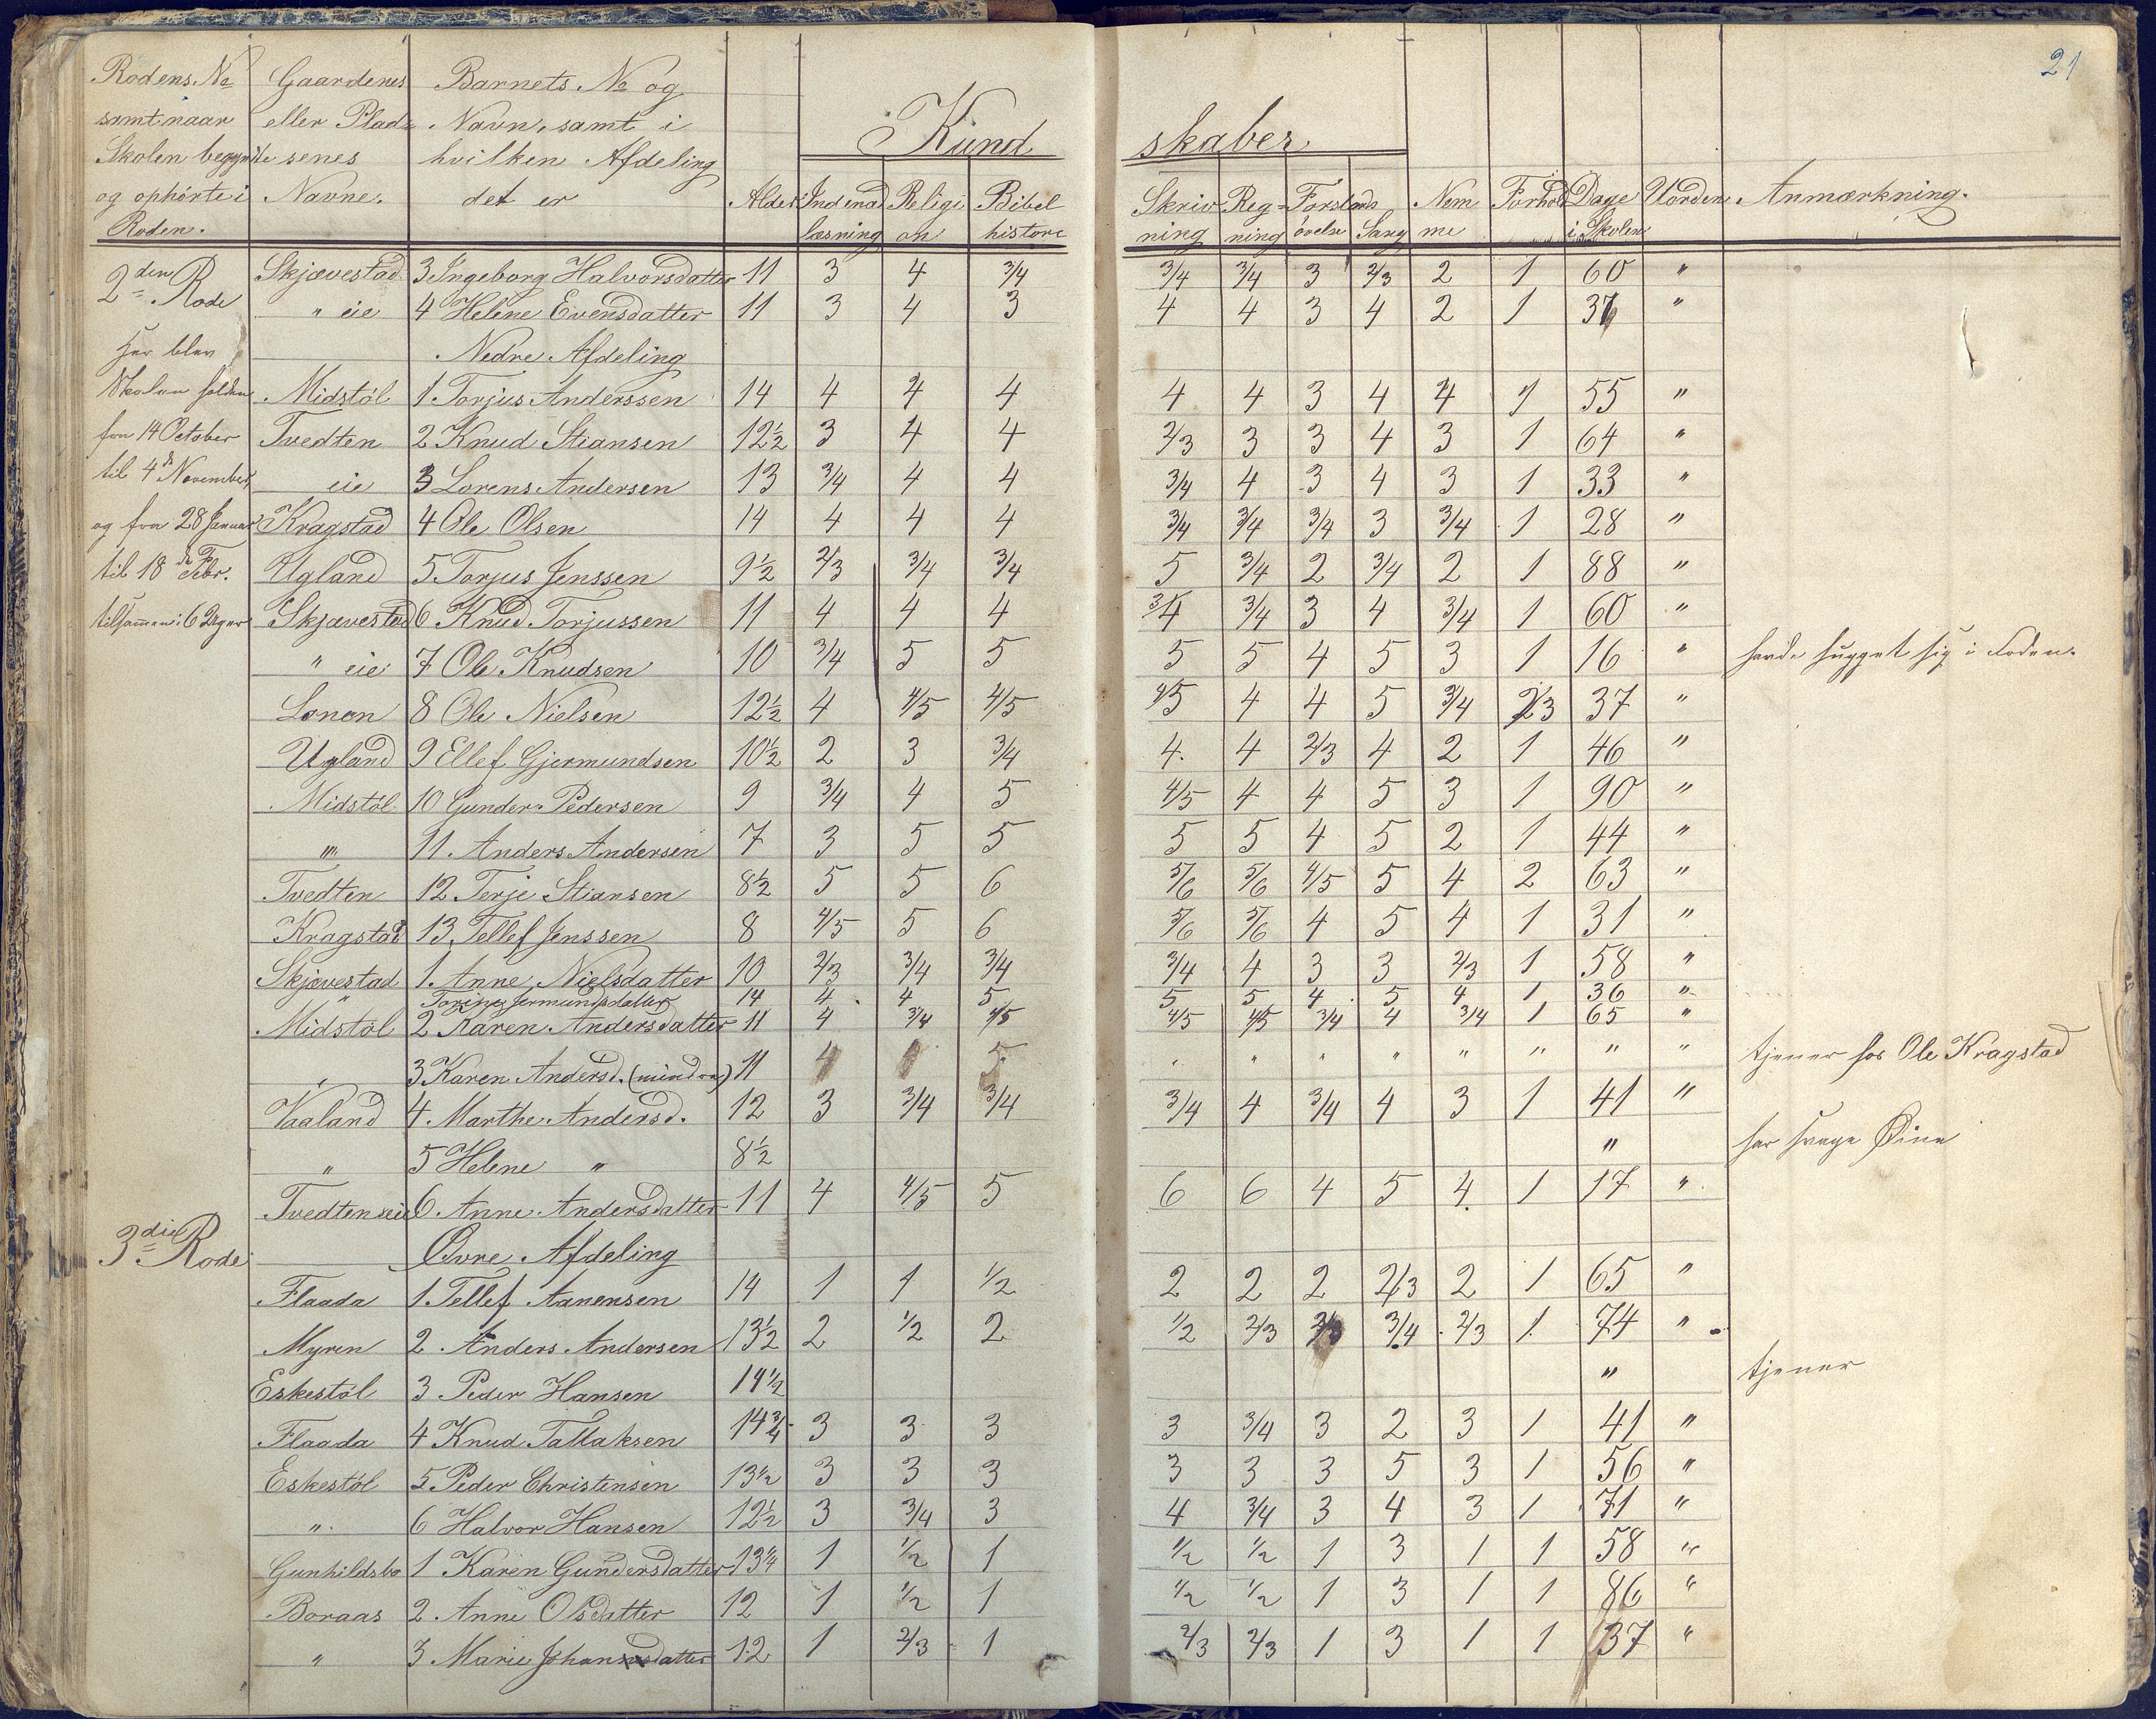 21
Rodens No Gaardenes Barnets No og
samt naar eller Plad- Navn, samt i Kund skaber
Skolen begyndte senes hvilken Afdeling
og ophørte i Navne. det er Alder Indenad Religi Bibel Skriv Reg= Forstands Nem Forhold Dage Uorden Anmærkning.
Roden. læsning on historie ning ning øvelse Sang me i Skolen
2den Rode Skjævestad 3 Ingeborg Halvorsdatter 11 3 4 3/4 3/4 3/4 3 2/3 2 1 60 "
" eie 4 Helene Evensdatter 11 3 4 3 4 4 3 4 2 1 "
Her blev Nedre Afdeling
Skolen holden Midstöl 1. Torjus Anderssen 14 4 4 4 4 4 3 4 4 1 55 "
fra 14 October Tvedten 2 Knud Stiansen 12½ 3 4 4 2/3 3 3 4 3 1 64 "
til 4de November, eie 3 Lorens Andersen 13 3/4 4 4 3/4 4 3 4 3 1 33 "
og fra 28 Januar Kragstad 4 Ole Olsen 14 4 4 4 3/4 3/4 3/4 3 3/4 1 28 "
til 18de Febr. Ugland 5. Torjus Jenssen 9½ 2/3 3/4 3/4 5 3/4 2 3/4 2 1 88 "
tilsammen: 6 Uger Skjævestad 6 Knud Torjussen 11 4 4 4 3/4 3/4 3 4 3/4 1 60 "
" eie 7 Ole Knudsen 10 3/4 5 5 5 5 4 5 3 1 16 " havde hugget sig i Foden.
Lonen 8 Ole Nielsen 12½ 4 4/5 4/5 4/5 4 4 5 3/4 2/3 37 "
Ugland 9 Ellef Gjermundsen 10½ 2 3 3/4 4. 4 2/3 4 2 1 46 "
Midstöl 10 Gunder Pedersen 9 3/4 4 5 4/5 4 4 5 3 1 90 "
"" 11. Anders Andersen 7 3 5 5 5 5 4 5 2 1 44 "
Tvedten 12 Terje Stiansen 8½ 5 5 6 5/6 5/6 4/5 5 4 2 63 "
Kragstad 13 Tellef Jenssen 8 4/5 5 6 5/6 5/6 4 5 4 1 31 "
Skjævestad 1. Anne Nielsdatter 10 2/3 3/4 3/4 3/4 4 3 3 2/3 1 58 "
" Torine Jermundsdatter 14 4 4 5 5 5 4 5 4 1 36 "
Midstöl 2 Karen Andersdatter 11 4 3/4 4/5 4/5 4/5 3/4 4 3/4 1 65 "
" 3 Karen Andersd. (mindre) 11 " " " " " " " " tjener hos Ole Kragstad
Vaaland 4. Marthe Andersd. 12 3 3/4 3/4 3/4 4 3/4 4 3 1 41 "
" 5 Helene " 8½ " har svage Øine
Tvedten eie 6 Anne Andersdatter 11 4 4/5 5 6 6 4 5 4. 1 17 "
3die Rode Øvre Afdeling
Flaada 1. Tellef Aanensen 14 1 1 1/2 2 2 2 2/3 2 1 65 "
Myren 2 Anders Andersen 13½ 2 1/2 2 1/2 2/3 2/3 3/4 2/3 1. 74 "
Eskestöl 3 Peder Hansen 14½ " tjener
Flaada 4 Knud Tallaksen 14¾ 3 3 3 3 3/4 3 2 3 1 41 "
Eskestöl 5 Peder Christensen 13½ 3 3 3 3 3 3 5 3 1 56 "
". 6 Halvor Hansen 12½ 3 3/4 3 4 3/4 3 4 3 1 71 "
Gunhildsbo 1 Karen Gundersdatter 13¼ 1 1/2 1 1/2 1/2 1 3 1 1 58 "
Boraas 2. Anne Olsdatter 12 1 1/2 1 1/2 1/2 1 3 1 1 86 "
" 3 Marie Johansdatter 12 1 2/3 1 2/3 2/3 1 3 1 1 37 "